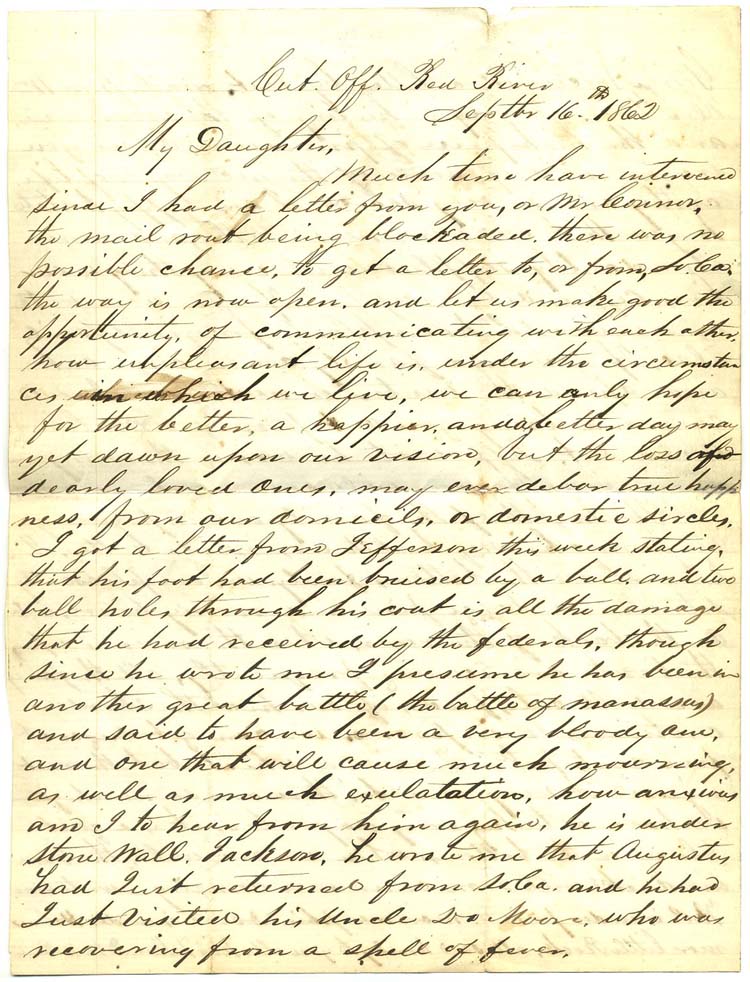 Cut. Off. Red River
Septbr 16th. 1862
My Daughter,
Much time have intervened
since I had a letter from you, or Mr Connor,
the mail rout being blockaded. there was no
possible chance, to get a letter to, or from, So. Ca.
the way is now open. and let us make good the
opportunity, of communicating with each other.
how unpleasant life is, under the circumstan
ces in which we live, we can only hope
for the better, a happier, and a better day may
yet dawn upon our vision, but the loss of
dearly loved ones, may ever debar true happi
ness, from our domicils, or domestic sircles,
I got a letter from Jefferson this week stating,
that his foot had been bruised by a ball, and two
ball holes through his coat is all the damage
that he had received by the federals, though
since he wrote me I presume he has been in
another great battle (the battle of manassas)
and said to have been a very bloody one,
and one that will cause much mourning,
as well as much exulatation, how anxious
am I to hear from him again, he is under
Stone Wall. Jackson, he wrote me that Augustus
had Just returned from So. Ca. and he had
Just Visited his Uncle Do Moore, who was
recovering from a spell of fever.